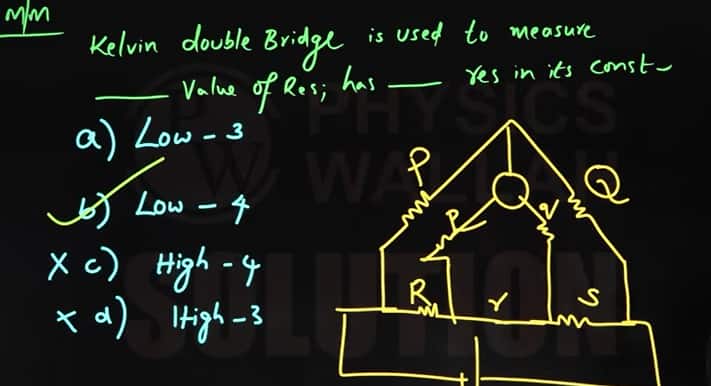 M/M
Kelvin double Bridge is used to measure
____ Value of Res; has ____ res in its const-
a) Low - 3
b) Low - 4
x c) High - 4
x d) High - 3
P
Q
p
q
R
r
S
PHYSICS
WALLAH
SOLUTION